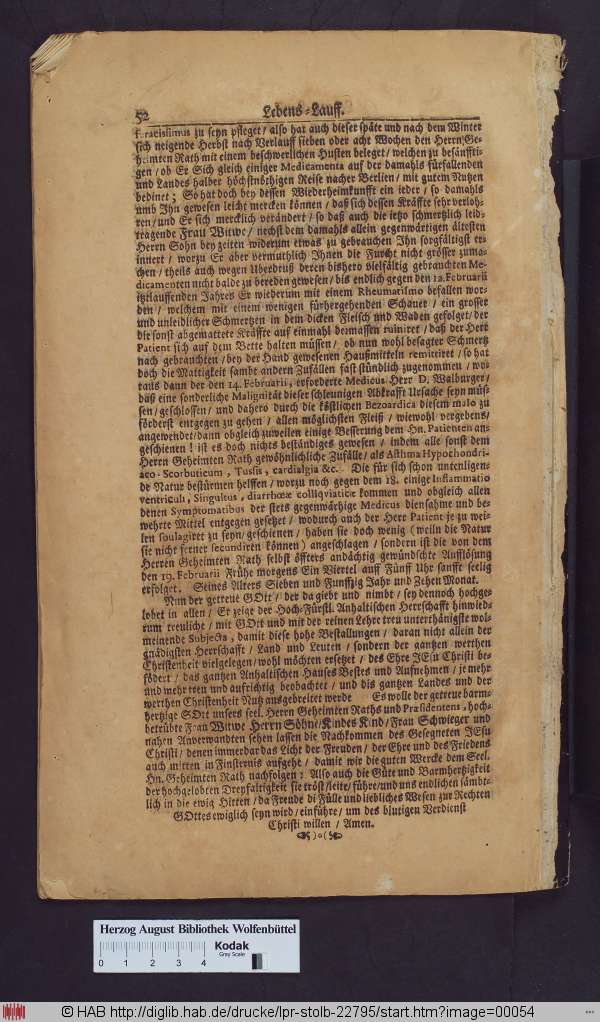 52 Lebens-Lauff.
feracissimus zu seyn pfleget / also hat auch dieser späte und nach dem Winter
sich neigende Herbst nach Verlauff sieben oder acht Wochen den Herrn Ge-
heimten Rath mit einem beschwerlichen Husten beleget / welchen zu besänffti-
gen / ob Er Sich gleich einiger Medicamenta auf der damahls fürfallenden
und Landes halber höchstnöthigen Reise nacher Berlien / mit gutem Nutzen
bedinet; So hat doch bey dessen Wiederheimkunfft ein ieder / so damahls
umb Ihn gewesen leicht mercken können / daß sich dessen Kräffte sehr verloh-
ren / und Er sich mercklich verändert / so daß auch die ietzo schmertzlich leid-
tragende Frau Witwe / nechst dem damahls allein gegenwärtigen ältesten
Herrn Sohn bey zeiten widerum etwas zu gebrauchen Ihn sorgfältigst er-
innert / worzu Er aber vermuthlich Ihnen die Furcht nicht grösser zuma-
chen / theils auch wegen Uberdruß deren bishero vielfältig gebrauchten Me-
dicamenten nicht balde zu bereden gewesen / bis endlich gegen den 12. Februarii
itztlauffenden Jahres Er wiederum mit einem Rheumatismo befallen wor-
den / welchem mit einem wenigen fürhergehenden Schauer / ein grosser
und unleidlicher Schmertzen in dem dicken Fleisch und Waden gefolget / der
die sonst abgemattete Kräffte auf einmahl dermassen ruiniret / daß der Herr
Patient sich auf dem Bette halten müssen / ob nun wohl besagter Schmertz
nach gebrauchten / bey der Hand gewesenen Haußmitteln remittiret / so hat
doch die Mattigkeit sambt andern Zufällen fast stündlich zugenommen / wor-
raus dann der den 14. Februarii, erforderte Medicus Herr D. Walburger /
daß eine sonderliche Malignität dieser schleunigen Abkrafft Ursache seyn müs-
sen / geschlossen / und dahero durch die köstlichen Bezoardica diesem malo zu
föderst entgegen zu gehen / allen möglichsten Fleiß / wiewohl vergebens /
angewendet / dann obgleich zuweilen einige Besserung dem Hn. Patienten an-
geschienen / ist es doch nichts beständiges gewesen / indem alle sonst dem
Herrn Geheimten Rath gewöhnlichliche Zufälle / als Asthma Hypochondri-
aco-Scorbuticum, Tussis, cardialgia &c. Die für sich schon untenligen-
de Natur bestürmen helffen / worzu noch gegen dem 18. einige Inflammatio
ventriculi, Singultus, diarrhœæ colliquativæ kommen und obgleich allen
denen Symptomatibus der stets gegenwärtige Medicus diensahme und be-
wehrte Mittel entgegen gesetzet / wodurch auch der Herr Patient je zu wei-
len soulagiret zu seyn / geschienen / haben sie doch wenig (weiln die Natur
sie nicht ferner secundiren können) angeschlagen / sondern ist die von dem
Herren Geheimten Rath selbst öffters andächtig gewündschte Aufflösung
den 19. Februarii Frühe morgens Ein Viertel auf Fünf Uhr sanffte seelig
erfolget. Seines Alters Sieben und Funffzig Jahr und Zehen Monat.
Nun der getreue GOtt / der da giebt und nimbt / sey dennoch hochge-
lobet in allen / Er zeige der Hoch-Fürstl. Anhaltischen Herrschafft hinwied-
rum treuliche / mit GOtt und mit der reinen Lehre treu unterthänigste wol-
meinende Subjecta, damit diese hohe Bestallungen / daran nicht allein der
gnädigsten Herrschafft / Land und Leuten / sondern der gantzen werthen
Christenheit vielgelegen / wohl möchten ersetzet / des Ehre JEsu Christi be-
födert / das gantzen Anhaltischen Hauses Bestes und Aufnehmen / je mehr
und mehr treu und aufrichtig beobachtet / und dis gantzen Landes und der
werthen Christenheit Nutz ausgebreitet werde Es wolle der getreue barm-
hertzige GOtt unsers seel. Herrn Geheimten Raths und Præsidentens, hoch-
betrübte Frau Witwe Herrn Söhne / Kindes Kind / Frau Schwieger und
nahen Anverwandten sehen lassen die Nachkommen des Gesegneten JEsu
Christi / denen immerdar das Licht der Freuden / der Ehre und des Friedens
auch mitten in Finsternis aufgeht / damit wir die guten Wercke dem Seel.
Hn. Geheimten Rath nachfolgen: Also auch die Güte und Barmhertzigkeit
der hochgelobten Dreyfaltigkeit sie tröst / leite / führe / und uns endlichen sämbt-
lich in die ewig Hütten / da Freude di Fülle und liebliches Wesen zur Rechten
GOttes ewiglich seyn wird / einführe / um des blutigen Verdienst
Christi willen / Amen.
Herzog August Bibliothek Wolfenbüttel
0 1 2 3 4 Kodak Gray Scale
© HAB http://diglib.hab.de/drucke/lpr-stolb-22795/start.htm?image=00054